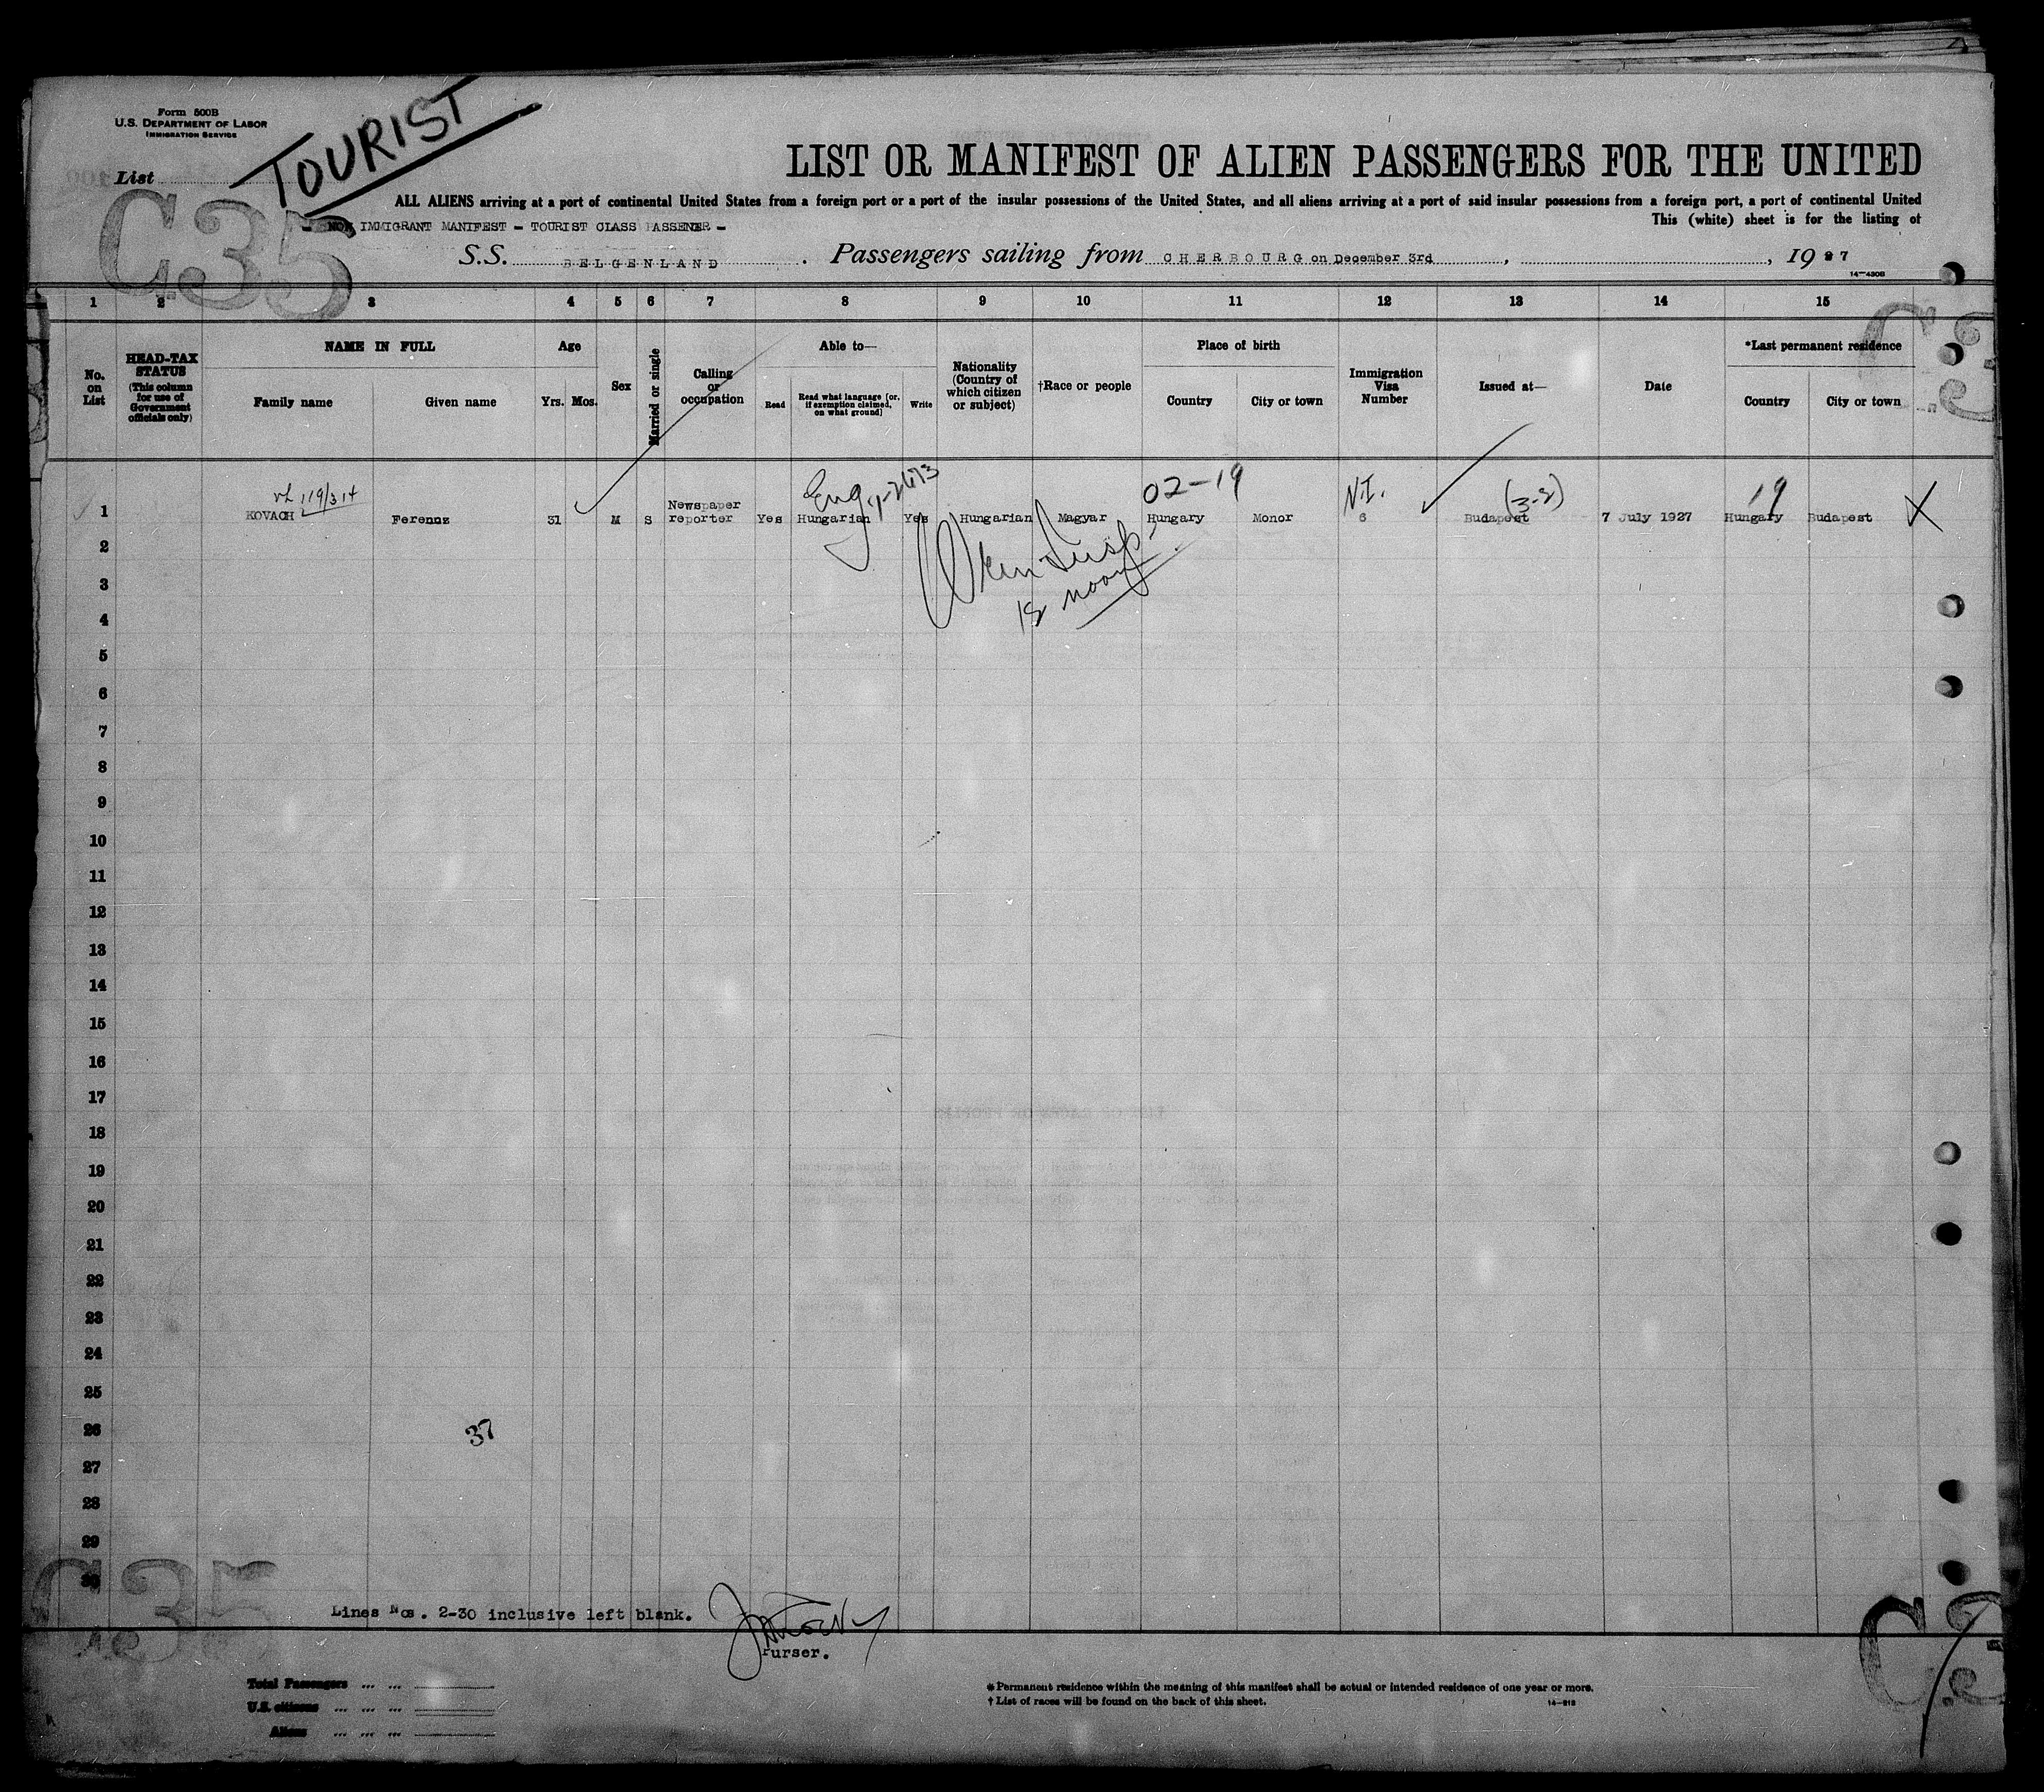 Form 500B
U.S. DEPARTMENT OF LABOR
IMMIGRATION SERVICE
List
TOURIST
C.35
LIST OR MANIFEST OF ALIEN PASSENGERS FOR THE UNITED
ALL ALIENS arriving at a port of continental United States from a foreign port or a port of the insular possessions of the United States, and all aliens arriving at a port of said insular possessions from a foreign port, a port of continental United
This (white) sheet is for the listing of
NON IMMIGRANT MANIFEST - TOURIST CLASS PASSENER -
S.S. BELGENLAND. Passengers sailing from CHERBOURG on December 3rd, , 1927
14-430B
1 2 3 4 5 6 7 8 9 10 11 12 13 14 15
No. on List
HEAD-TAX STATUS (This column for use of Government officials only)
NAME IN FULL
Family name Given name
Age
Yrs. Mos.
Sex
Married or single
Calling or occupation
Able to—
Read Read what language (or, if exemption claimed, on what ground) Write
Nationality (Country of which citizen or subject)
†Race or people
Place of birth
Country City or town
Immigration Visa Number
Issued at—
Date
*Last permanent residence
Country City or town
119/314 Eng 02-19 N.I. (3-2) 19
1 KOVACH Ferencz 31 M S Newspaper reporter Yes Hungarian Yes Hungarian Magyar Hungary Monor 6 Budapest 7 July 1927 Hungary Budapest X
noon
2
3
4
5
6
7
8
9
10
11
12
13
14
15
16
17
18
19
20
21
22
23
24
25
26
37
27
28
29
30
C.35
Lines Nos. 2-30 inclusive left blank.
Purser.
Total Passengers ... ...
U.S. citizens ... ... ...
Aliens ... ... ...
* Permanent residence within the meaning of this manifest shall be actual or intended residence of one year or more.
† List of races will be found on the back of this sheet.
14-212